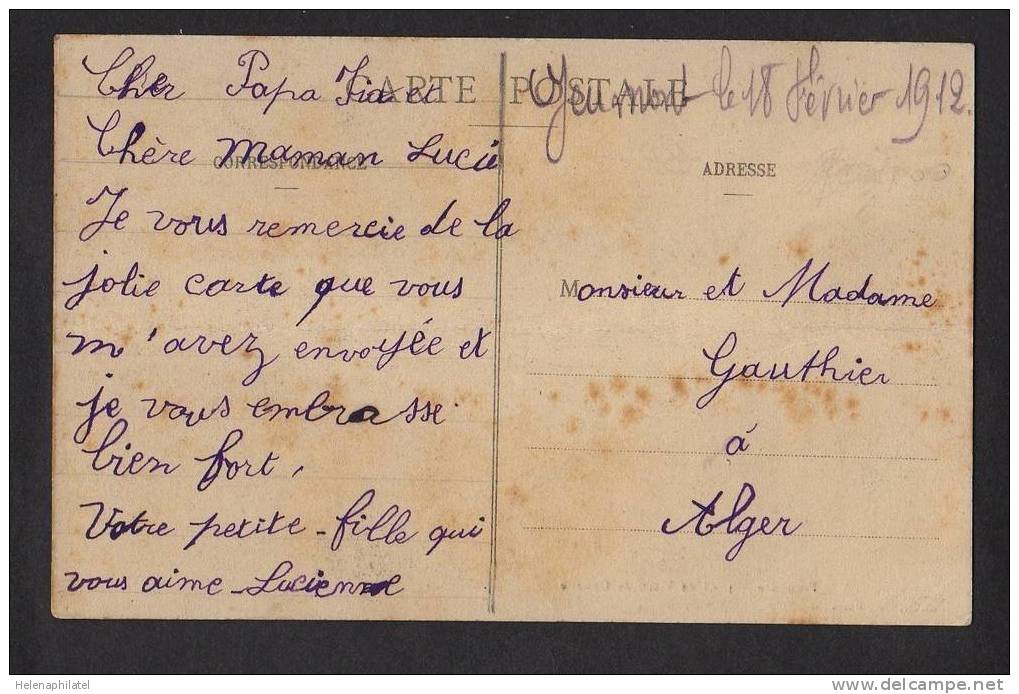 CARTE POSTALE
Jeumont le 18 Février 1912.
CORRESPONDANCE
Cher Papa et
Chère Maman Lucie
Je vous remercie de la
jolie carte que vous
m'avez envoyée et
je vous embrasse
bien fort,
Votre petite-fille qui
vous aime - Lucienne
ADRESSE
Monsieur et Madame
Gauthier
à
Alger
Helenaphilatel
www.delcampe.net